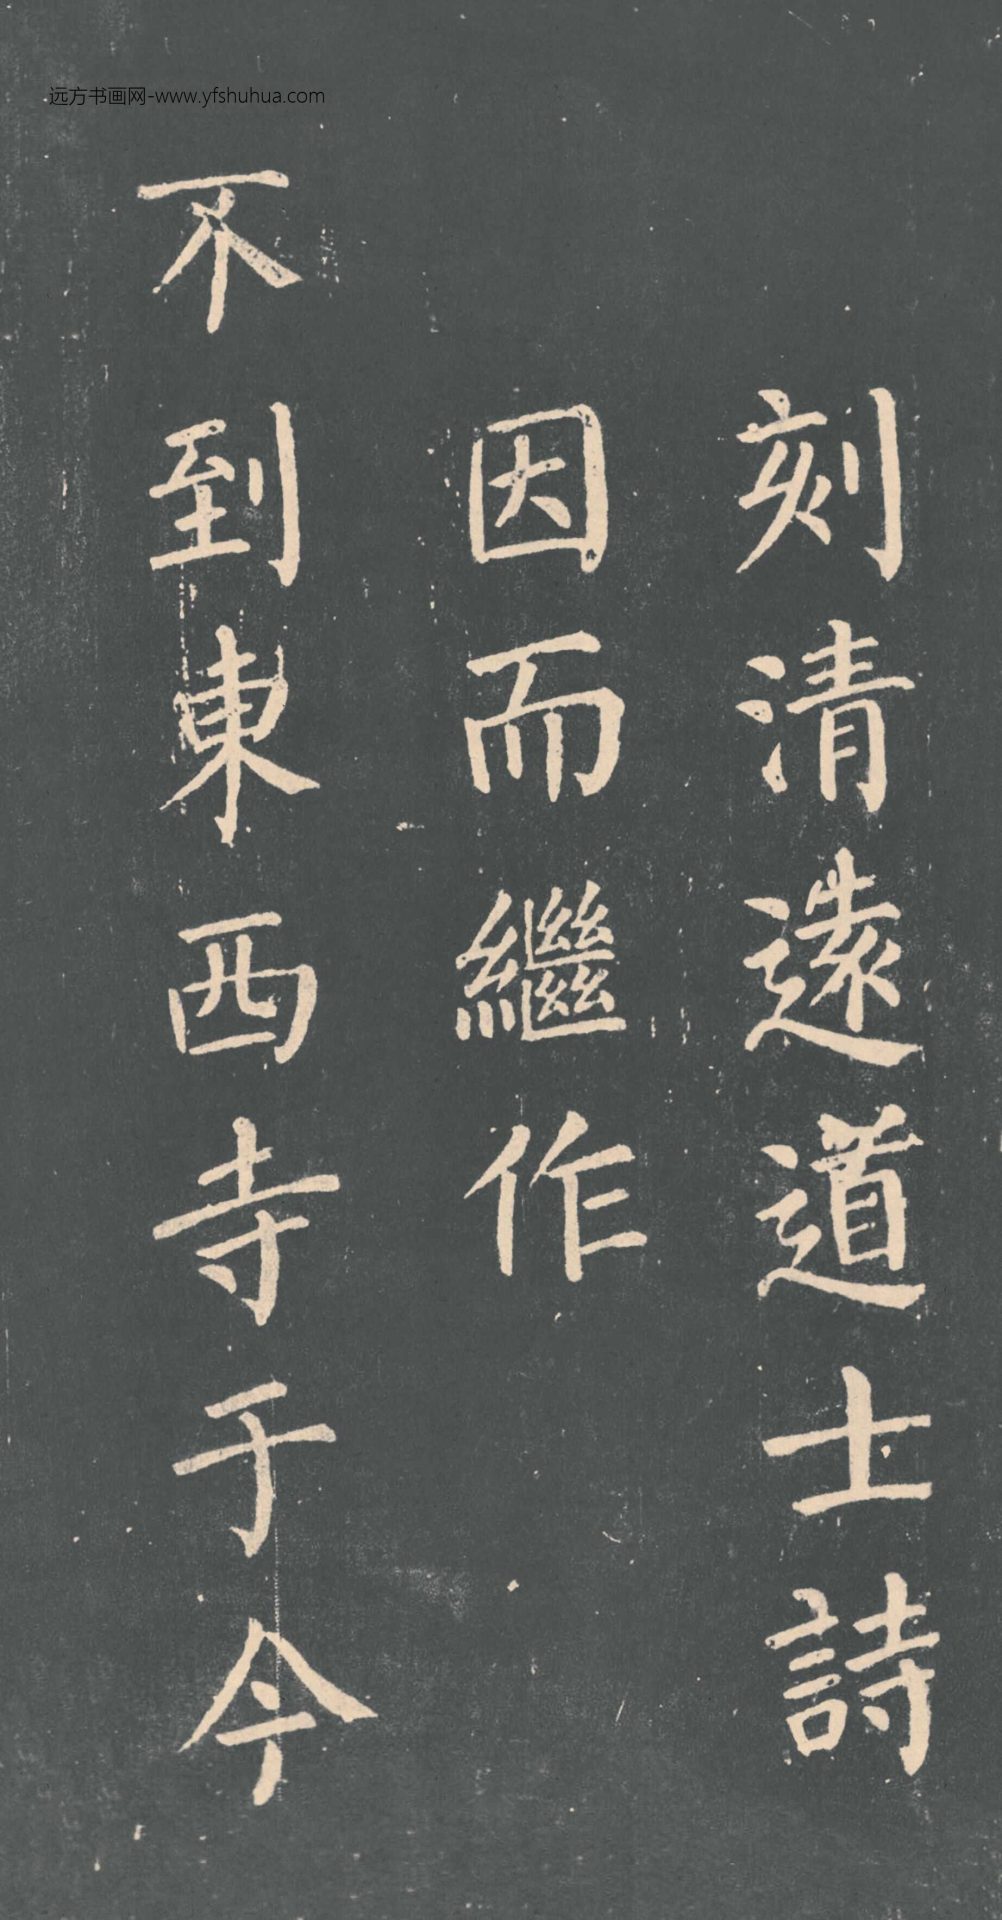 远方书画网-www.yfshuhua.com
刻清遠道士詩
因而繼作
不到東西寺于今